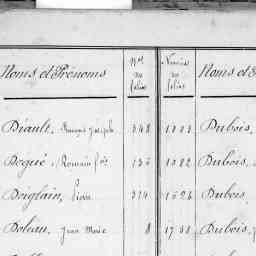 Noms et Prénoms Nos des folios Numéros des folios Noms et
Diault, François Joseph 348 1883 Dubois,
Dogué, Romain fois 135 1882 Dubois,
Doiglain, Pierre 314 1826 Dubois,
Doléan, Jean Marie 8 1738 Dubois,